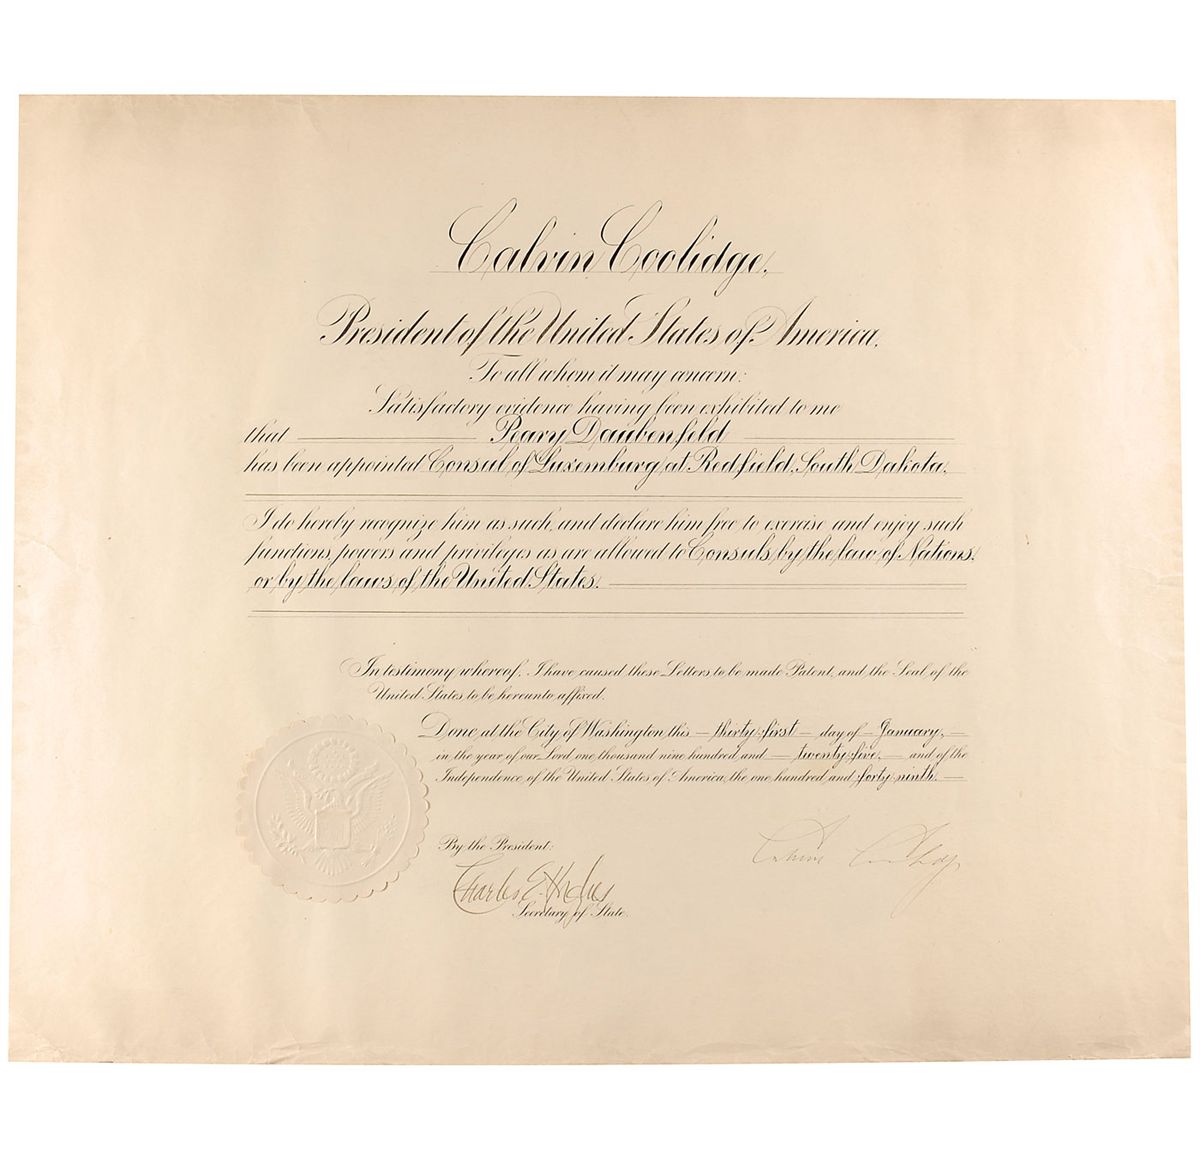 Calvin Coolidge,
President of the United States of America.
To all whom it may concern:
Satisfactory evidence having been exhibited to me
that Peary Daubenfeld
has been appointed Consul of Luxemburg at Redfield, South Dakota,
I do hereby recognize him as such, and declare him free to exercise and enjoy such
functions, powers and privileges as are allowed to Consuls by the law of Nations,
or by the laws of the United States.
In testimony whereof, I have caused these Letters to be made Patent, and the Seal of the
United States to be hereunto affixed.
Done at the City of Washington this thirty-first day of January,
in the year of our Lord one thousand nine hundred and twenty-five, and of the
Independence of the United States of America, the one hundred and forty-ninth.
By the President:
Calvin Coolidge
Charles E. Hughes
Secretary of State.